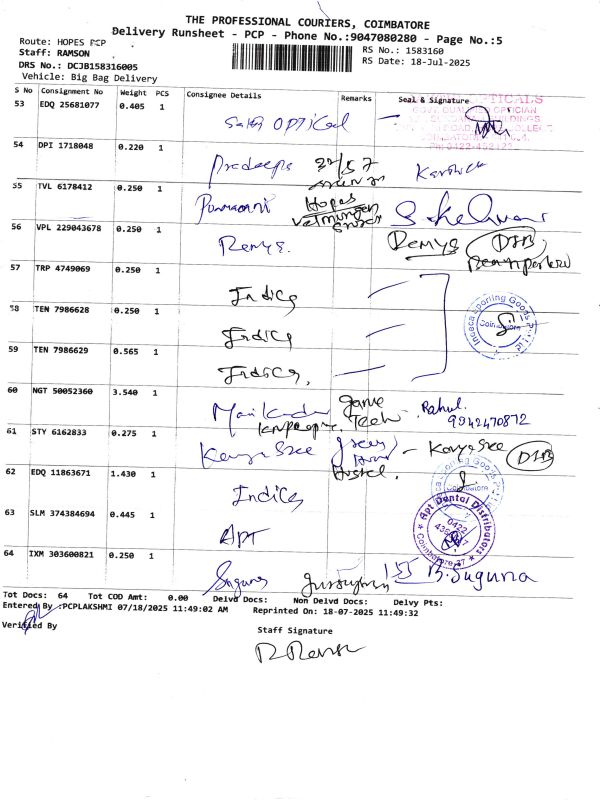 THE PROFESSIONAL COURIERS, COIMBATORE
Delivery Runsheet - PCP - Phone No.:9047080280 - Page No.:5
Route: HOPES PCP
Staff: RAMSON
RS No.: 1583160
DRS No.: DCJB158316005
RS Date: 18-Jul-2025
Vehicle: Big Bag Delivery
S No Consignment No Weight PCS Consignee Details Remarks Seal & Signature
53 EDQ 25681077 0.405 1 OPTICAL
54 DPI 1718048 0.220 1 Pradeepa Karthick
55 TVL 6178412 0.250 1 Hopes
56 VPL 229043678 0.250 1 Remya. Remya
57 TRP 4749069 0.250 1 Indica
58 TEN 7986628 0.250 1 Indica
59 TEN 7986629 0.565 1 Indica,
60 NGT 50052360 3.540 1 Game Tech Rahul.
9942470872
61 STY 6162833 0.275 1 Kavya Sree Hostel. - Kavya Sree
62 EDQ 11863671 1.430 1 Indica
63 SLM 374384694 0.445 1 APT
Apt Dental Distributors
0422
Coimbatore
64 IXM 303600821 0.250 1 Suguna B. Suguna
Tot Docs: 64 Tot COD Amt: 0.00 Delvd Docs: Non Delvd Docs: Delvy Pts:
Entered By :PCPLAKSHMI 07/18/2025 11:49:02 AM Reprinted On: 18-07-2025 11:49:32
Verified By
Staff Signature